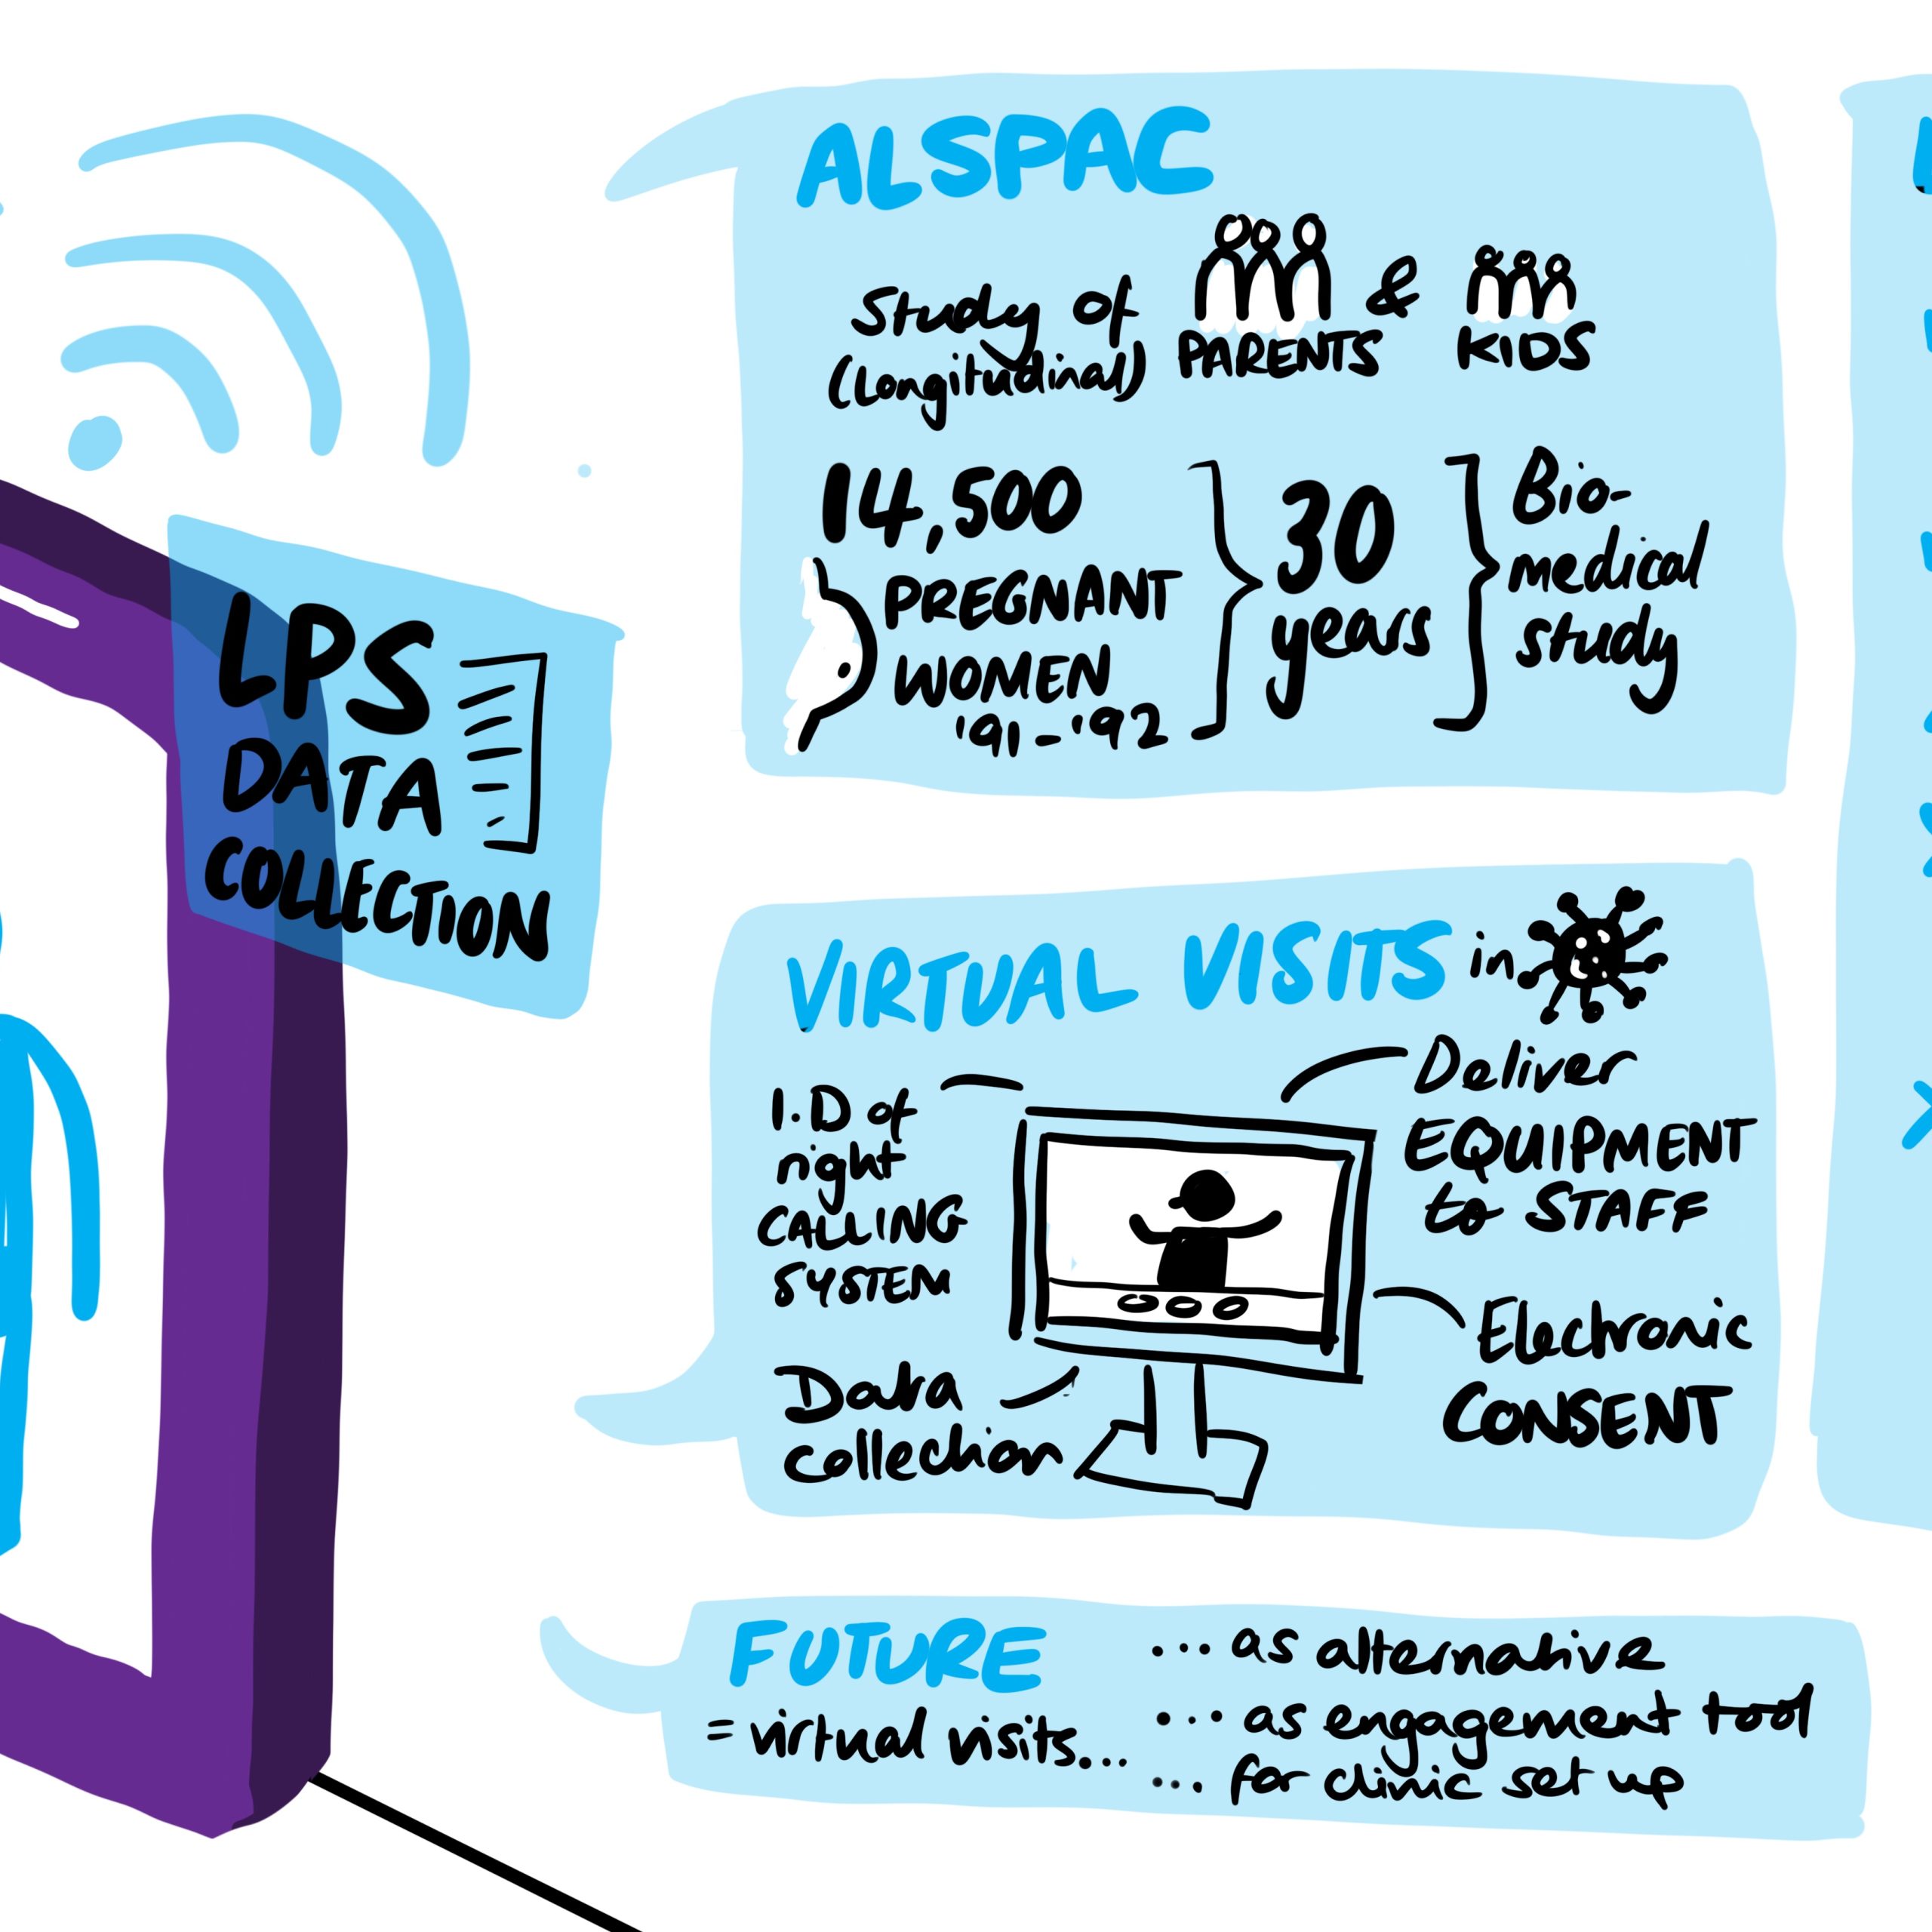 LPS
DATA
COLLECTION
ALSPAC
Study of
(Longitudinal)
PARENTS
&
KIDS
14,500
PREGNANT
WOMEN
'91-'92
30
years
Bio-
medical
study
VIRTUAL VISITS in
1. ID of
right
CALLING
SYSTEM
Data
collection
Deliver
EQUIPMENT
to STAFF
Electronic
CONSENT
FUTURE
= virtual visits...
... as alternative
... as engagement tool
... for clinic set up